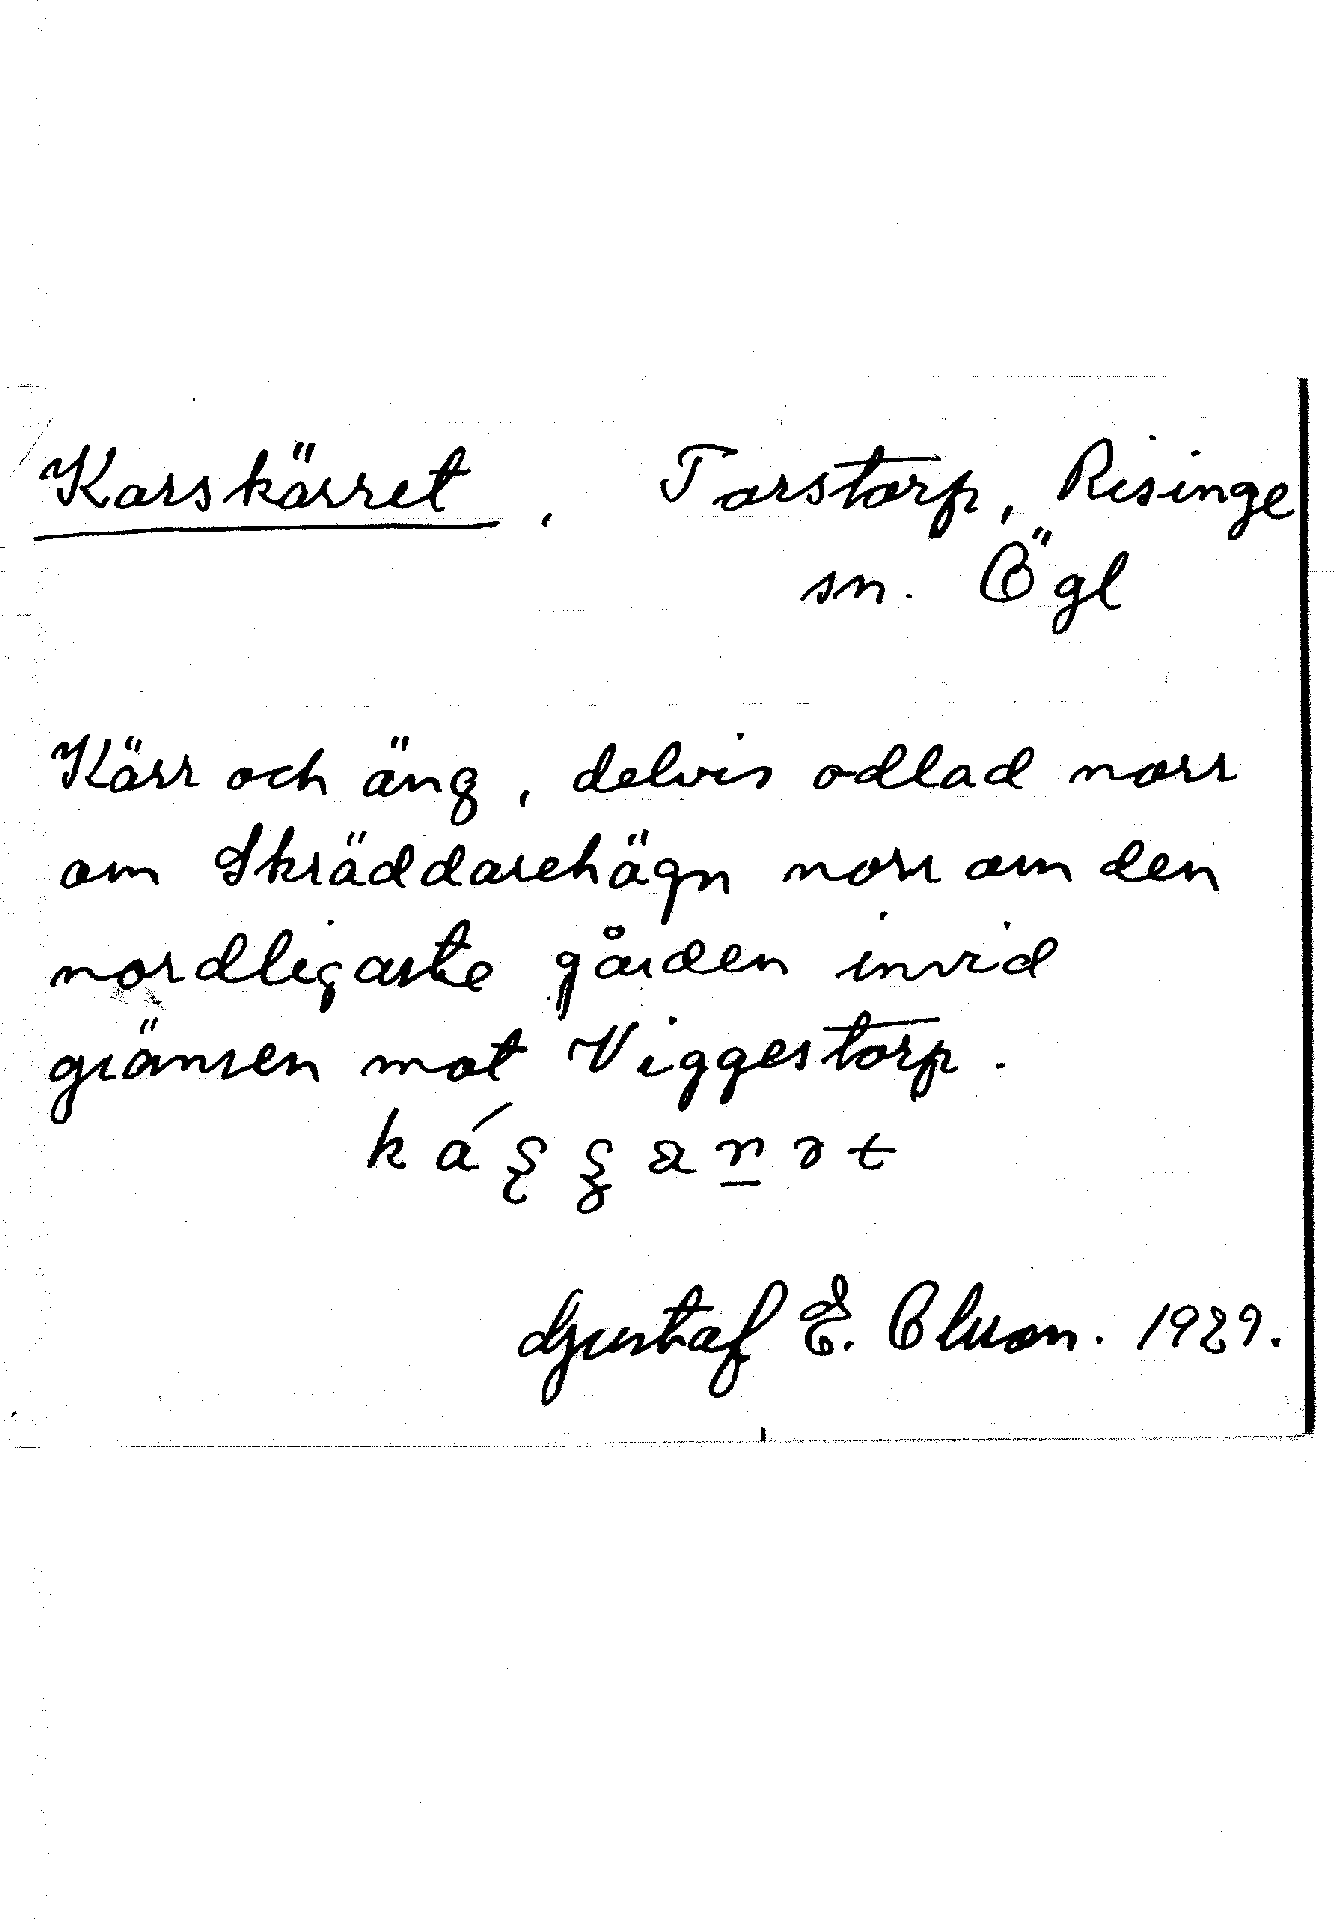 Karskärret, Torstorp, Risinge
sn. Ögl
Kärr och äng, delvis odlad norr
om Skräddarehägn norr om den
nordligaste gården invid
gränsen mot Viggestorp.
Gustaf E. Clson. 1929.